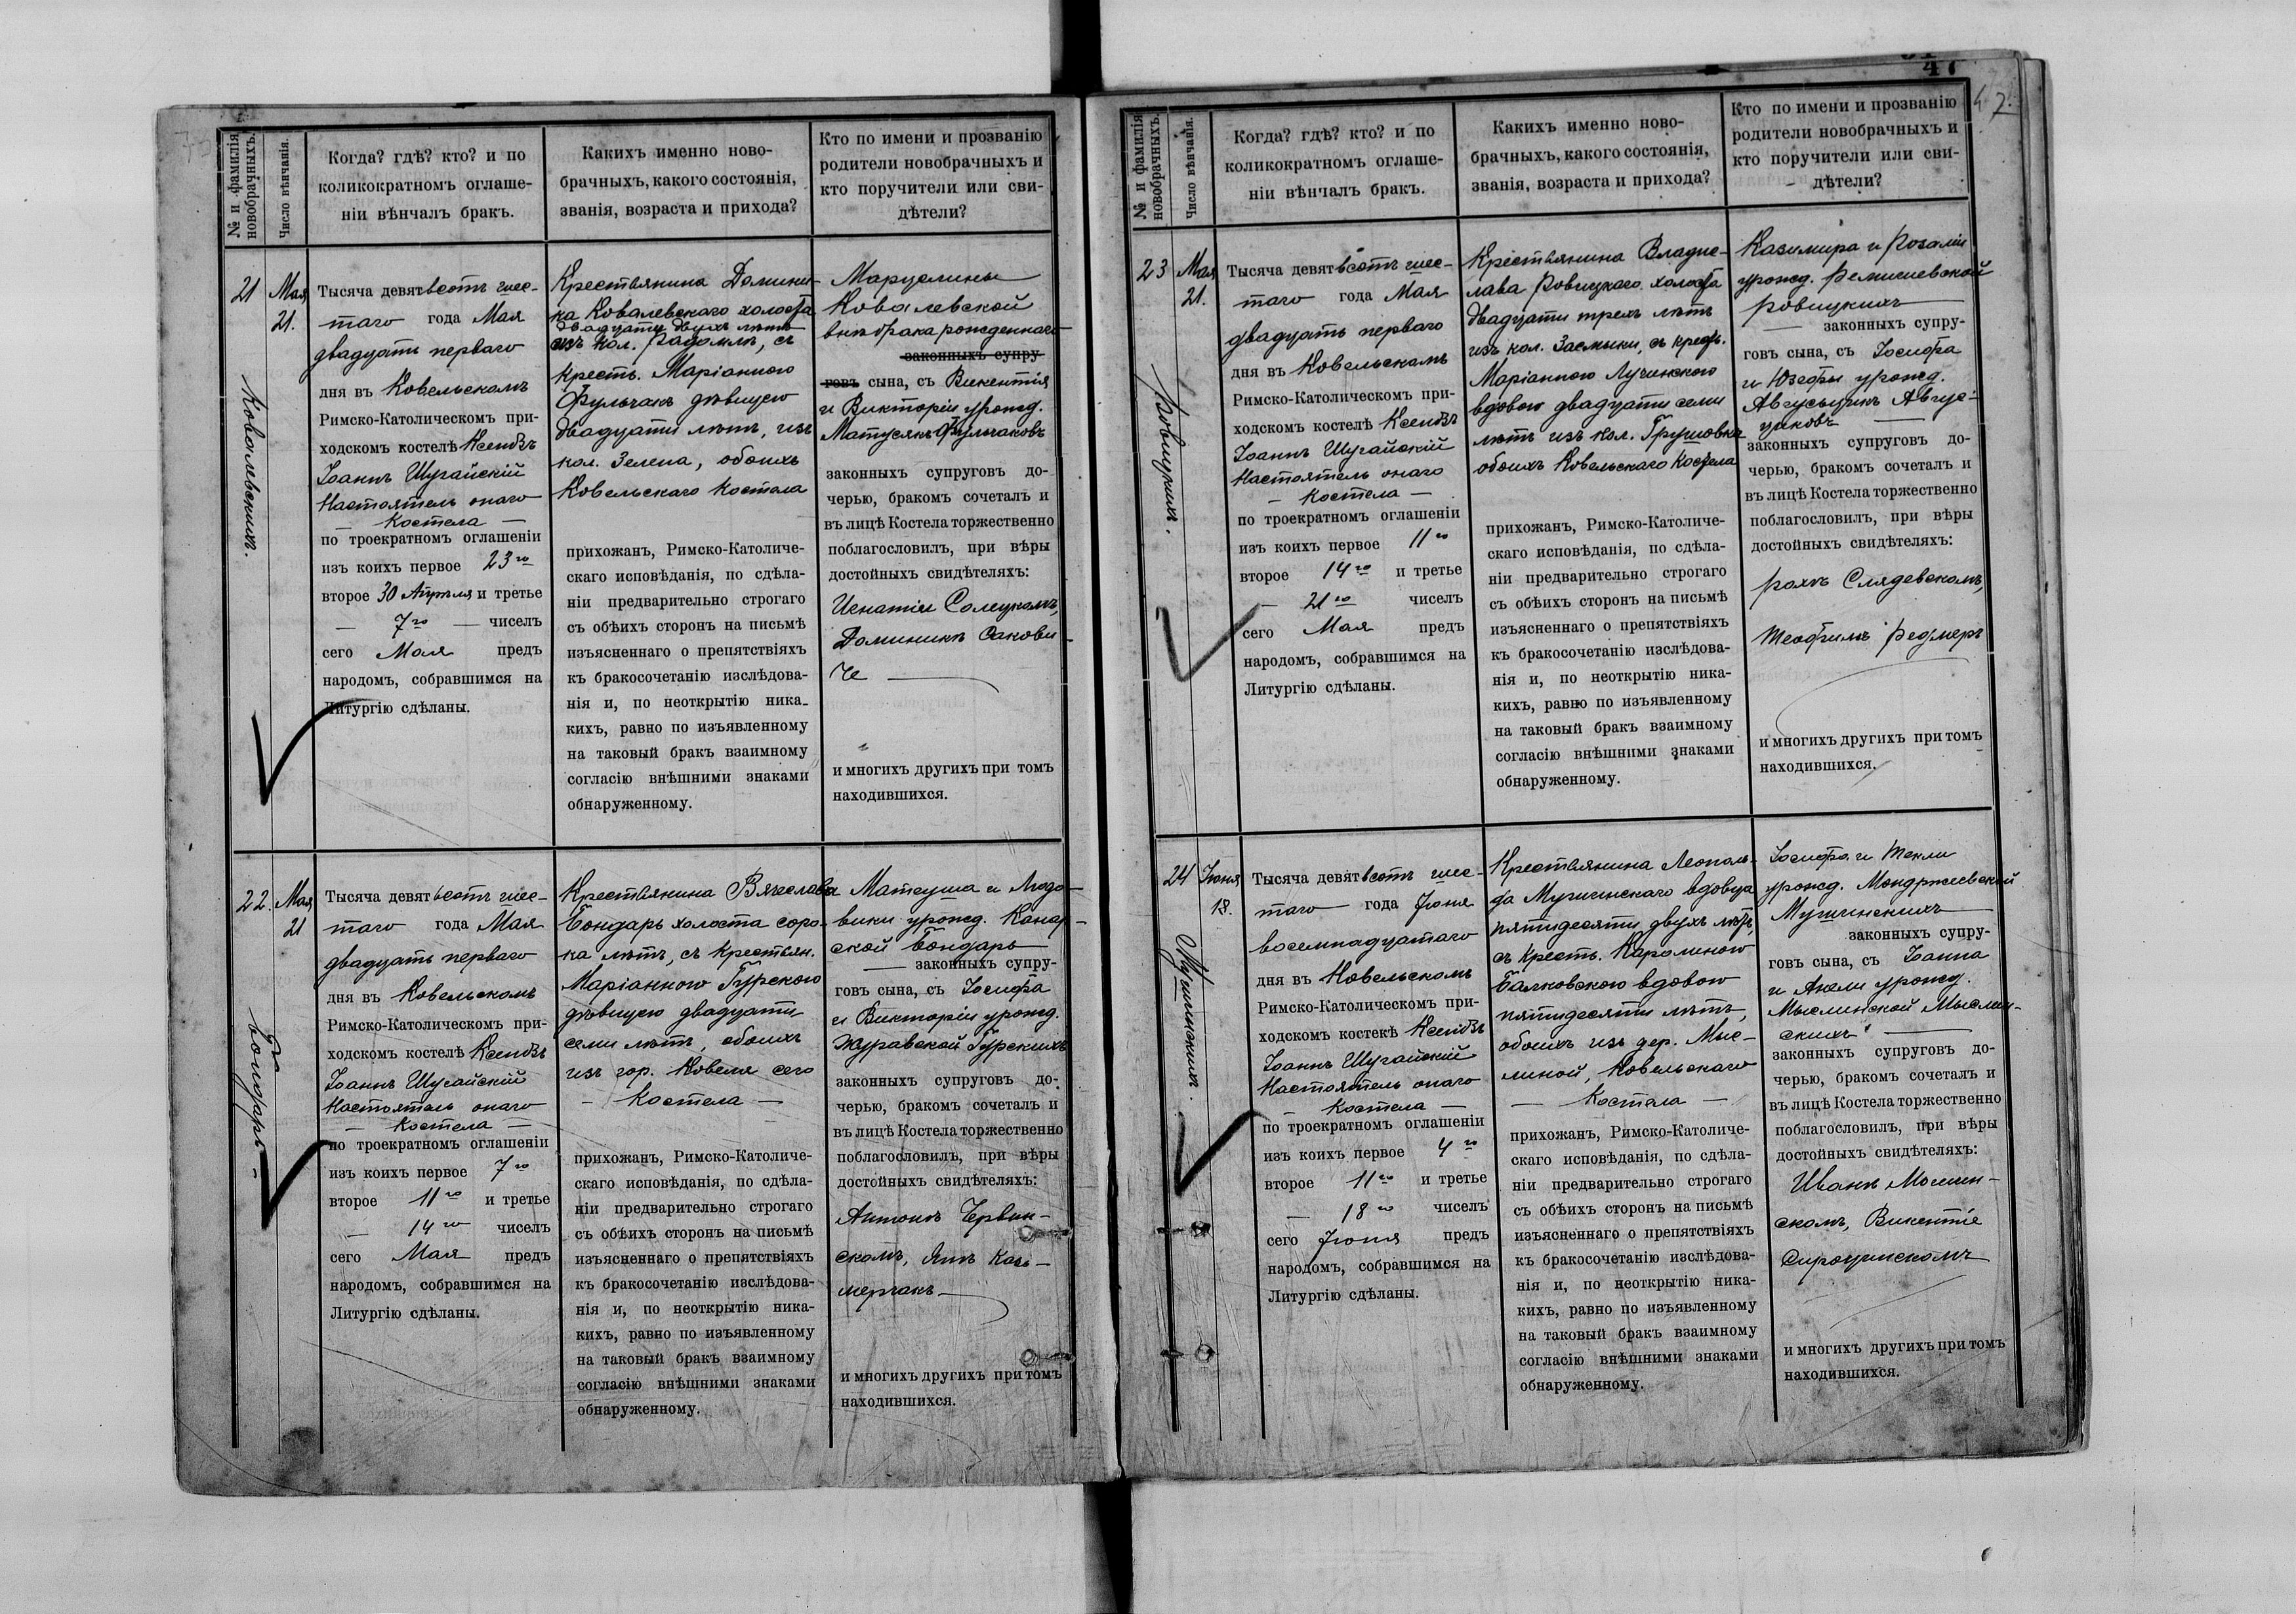 № и фамилія
новобрачныхъ.
Число вѣнчанія.
Когда? гдѣ? кто? и по
коликократномъ оглаше-
ніи вѣнчалъ бракъ.
Какихъ именно ново-
брачныхъ, какого состоянія,
званія, возраста и прихода?
Кто по имени и прозванію
родители новобрачныхъ и
кто поручители или сви-
дѣтели?
21
Мая
21.
Ковалевскихъ.
Тысяча девятьсотъ шес-
таго года Мая
двадцать перваго
дня въ Ковельскомъ
Римско-Католическомъ при-
ходскомъ костелѣ Ксендзъ
Іоаннъ Шугайскій
Настоятель онаго
— Костела —
по троекратномъ оглашеніи
изъ коихъ первое 23го
второе 30 Апрѣля и третье
— 7го — чиселъ
сего Мая предъ
народомъ, собравшимся на
Литургію сдѣланы.
Крестьянина Домини-
ка Ковалевскаго холоста
двадцати двухъ лѣтъ
изъ кол. Радомль, съ
крестъ. Маріанною
Фульчакъ дѣвицею
двадцати лѣтъ, изъ
кол. Зелена, обоихъ
Ковельскаго Костела
прихожанъ, Римско-Католиче-
скаго исповѣданія, по сдѣла-
ніи предварительно строгаго
съ обѣихъ сторонъ на письмѣ
изъясненнаго о препятствіяхъ
къ бракосочетанію изслѣдова-
нія и, по неоткрытію ника-
кихъ, равно по изъявленному
на таковый бракъ взаимному
согласію внѣшними знаками
обнаруженному.
Марцелины
Ковалевской
внѣ брака рожденнаго
законныхъ супру-
говъ сына, съ Викентія
и Викторіи урожд.
Матусякъ Фульчаковъ
законныхъ супруговъ до-
черью, бракомъ сочеталъ и
въ лицѣ Костела торжественно
поблагословилъ, при вѣры
достойныхъ свидѣтеляхъ:
Игнатіи Солецкомъ,
Доминикѣ Сакови-
че —
и многихъ другихъ при томъ
находившихся.
22.
Мая
21
Бондарь
Тысяча девятьсотъ шес-
таго года Мая
двадцать перваго
дня въ Ковельскомъ
Римско-Католическомъ при-
ходскомъ костелѣ Ксендзъ
Іоаннъ Шугайскій
Настоятель онаго
— Костела —
по троекратномъ оглашеніи
изъ коихъ первое 7го
второе 11го и третье
— 14го чиселъ
сего Мая предъ
народомъ, собравшимся на
Литургію сдѣланы.
Крестьянина Вячеслава
Бондарь холоста соро-
ка лѣтъ, съ крестьян.
Маріанною Гурскою
дѣвицею двадцати
семи лѣтъ, обоихъ
изъ гор. Ковеля сего
— Костела —
прихожанъ, Римско-Католиче-
скаго исповѣданія, по сдѣла-
ніи предварительно строгаго
съ обѣихъ сторонъ на письмѣ
изъясненнаго о препятствіяхъ
къ бракосочетанію изслѣдова-
нія и, по неоткрытію ника-
кихъ, равно по изъявленному
на таковый бракъ взаимному
согласію внѣшними знаками
обнаруженному.
Матеуша и Людо-
вики урожд. Канар-
ской Бондарь
— законныхъ супру-
говъ сына, съ Іосифа
и Викторіи урожд.
Журавской Гурскихъ
законныхъ супруговъ до-
черью, бракомъ сочеталъ и
въ лицѣ Костела торжественно
поблагословилъ, при вѣры
достойныхъ свидѣтеляхъ:
Антонѣ Червин-
скомъ, Янѣ Казь-
мерчакѣ —
и многихъ другихъ при томъ
находившихся.
47
47.
№ и фамилія
новобрачныхъ.
Число вѣнчанія.
Когда? гдѣ? кто? и по
коликократномъ оглаше-
ніи вѣнчалъ бракъ.
Какихъ именно ново-
брачныхъ, какого состоянія,
званія, возраста и прихода?
Кто по имени и прозванію
родители новобрачныхъ и
кто поручители или сви-
дѣтели?
23
Мая
21.
Ровицкихъ.
Тысяча девятьсотъ шес-
таго года Мая
двадцать перваго
дня въ Ковельскомъ
Римско-Католическомъ при-
ходскомъ костелѣ Ксендзъ
Іоаннъ Шугайскій
Настоятель онаго
— Костела —
по троекратномъ оглашеніи
изъ коихъ первое 11го
второе 14го и третье
— 21го чиселъ
сего Мая предъ
народомъ, собравшимся на
Литургію сдѣланы.
Крестьянина Владис-
лава Ровицкаго холоста
двадцати трехъ лѣтъ
изъ кол. Засмыки, съ крест.
Маріанною Лучинскою
вдовою двадцати семи
лѣтъ изъ кол. Грушовка
обоихъ Ковельскаго Костела
прихожанъ, Римско-Католиче-
скаго исповѣданія, по сдѣла-
ніи предварительно строгаго
съ обѣихъ сторонъ на письмѣ
изъясненнаго о препятствіяхъ
къ бракосочетанію изслѣдова-
нія и, по неоткрытію ника-
кихъ, равно по изъявленному
на таковый бракъ взаимному
согласію внѣшними знаками
обнаруженному.
Казимира и Розаліи
урожд. Ремишевской
Ровицкихъ
— законныхъ супру-
говъ сына, съ Іосифа
и Юзефы урожд.
Авгусьцикъ Авгус-
циковъ —
законныхъ супруговъ до-
черью, бракомъ сочеталъ и
въ лицѣ Костела торжественно
поблагословилъ, при вѣры
достойныхъ свидѣтеляхъ:
Рохѣ Слядевскомъ,
Теофилѣ Редмеръ
и многихъ другихъ при томъ
находившихся.
24
Іюня
18.
Мушинскихъ.
Тысяча девятьсотъ шес-
таго года Іюня
восемнадцатаго
дня въ Ковельскомъ
Римско-Католическомъ при-
ходскомъ костекѣ Ксендзъ
Іоаннъ Шугайскій
Настоятель онаго
— Костела —
по троекратномъ оглашеніи
изъ коихъ первое 4го
второе 11го и третье
— 18го чиселъ
сего Іюня предъ
народомъ, собравшимся на
Литургію сдѣланы.
Крестьянина Леополь-
да Мушинскаго вдовца
пятидесяти двухъ лѣтъ,
съ крестъ. Каролиною
Балковскою вдовою
пятидесяти лѣтъ,
обоихъ изъ дер. Мыс-
линой, Ковельскаго
— Костела —
прихожанъ, Римско-Католиче-
скаго исповѣданія, по сдѣла-
ніи предварительно строгаго
съ обѣихъ сторонъ на письмѣ
изъясненнаго о препятствіяхъ
къ бракосочетанію изслѣдова-
нія и, по неоткрытію ника-
кихъ, равно по изъявленному
на таковый бракъ взаимному
согласію внѣшними знаками
обнаруженному.
Іосифа и Текли
урожд. Мондржеевской
Мушинскихъ
законныхъ супру-
говъ сына, съ Іоанна
и Анели урожд.
Мыслинской Мыслин-
скихъ —
законныхъ супруговъ до-
черью, бракомъ сочеталъ и
въ лицѣ Костела торжественно
поблагословилъ, при вѣры
достойныхъ свидѣтеляхъ:
Иванѣ
скомъ, Викентіе
Сироцинскомъ
и многихъ другихъ при томъ
находившихся.